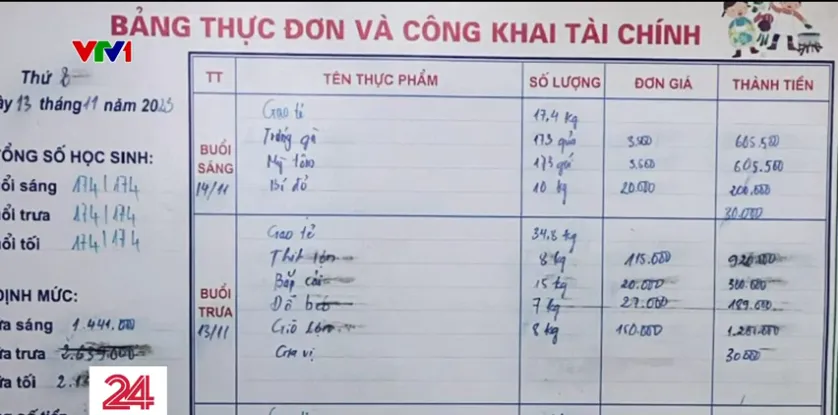 BẢNG THỰC ĐƠN VÀ CÔNG KHAI TÀI CHÍNH
VTV1
Thứ
13 tháng 11 năm 2023
TỔNG SỐ HỌC SINH:
sáng 174 / 174
trưa 174 / 174
tối 174 / 174
ĐỊNH MỨC:
sáng 1.441.000
trưa
tối
TT TÊN THỰC PHẨM SỐ LƯỢNG ĐƠN GIÁ THÀNH TIỀN
BUỔI SÁNG 14/11
Gạo tẻ 17,4 kg
Trứng gà 173 quả 3.500 605.500
Mỳ tôm 173 gói 3.500 605.500
Bí đỏ 10 kg 20.000 200.000
30.000
BUỔI TRƯA 13/11
Gạo tẻ 34,8 kg
Thịt lợn 8 kg 115.000 920.000
Bắp cải 15 kg 20.000 300.000
7 kg 27.000 189.000
Giò lợn 8 kg 150.000
Gia vị 30.000
24